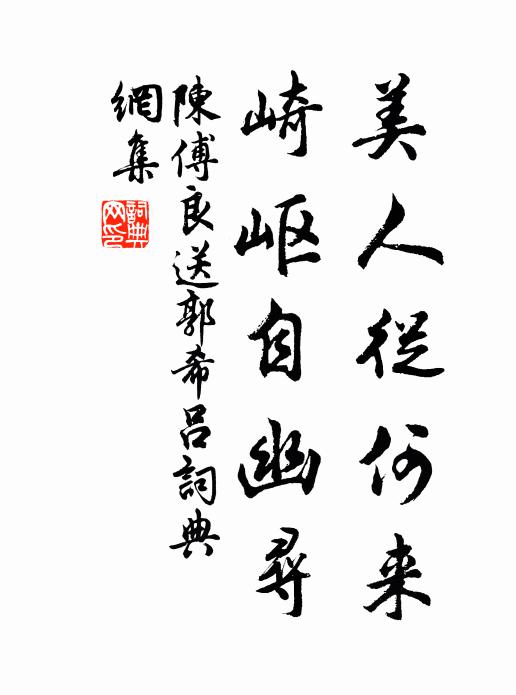 美人從何来
崎岖自幽尋
陳傅良送郭希吕詞典
網集
詞典网印